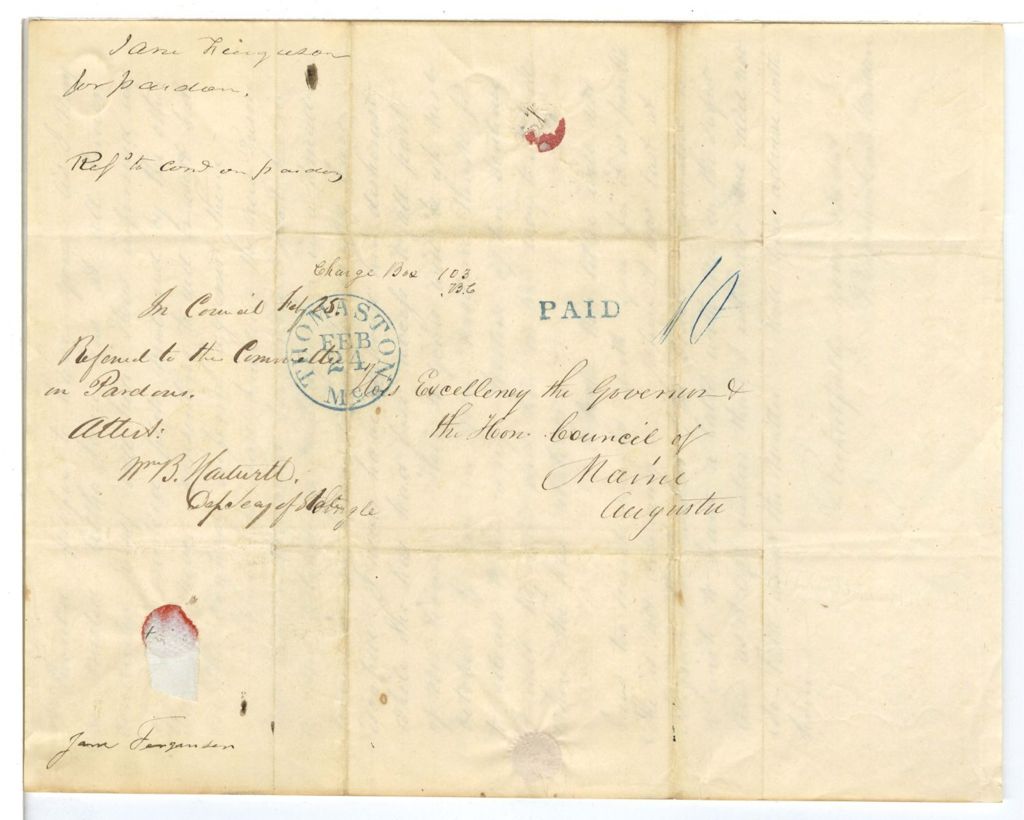 Jane Ferguson
for pardon.
Refd to Cond on pardon
Charge Box 103
In Council Feby 25.
Referred to the Committee
on Pardons.
Attest:
Wm B. Hartwell.
Dep Secy of State
Single
THOMASTON
FEB
24
Me.
PAID
10
His Excellency the Governor &
the Hon. Council of
Maine
Augusta
Jane Fergusson